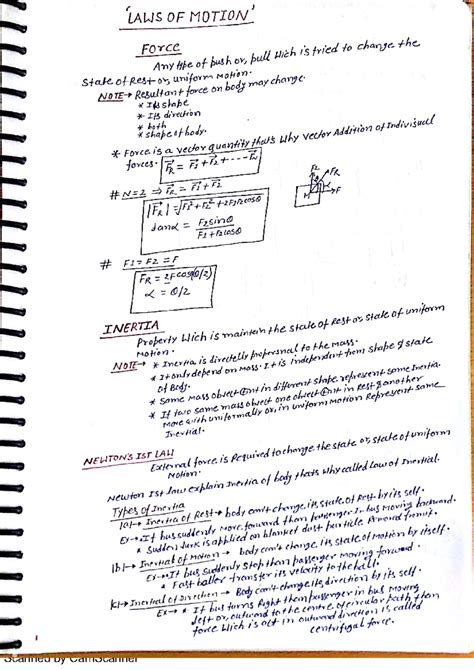 'LAWS OF MOTION'
FORCE
Any type of push or, pull Hich is tried to change the
State of Rest or, uniform motion.
NOTE→ Resultant force on body may change.
* Its shape
* Its direction
* both
* shape of body.
* Force is a vector quantity thats Why Vector Addition of Individual
forces. F⃗R = F⃗1 + F⃗2 + ----F⃗N
# N=2 ⇒ F⃗R = F⃗1 + F⃗2
|F⃗R| = √F1²+F2²+2F1F2cosθ
tanα = F2sinθ / F1+F2cosθ
F2 FR
F
# F1 = F2 = F
FR = 2Fcos(θ/2)
α = θ/2
INERTIA
Property Hich is maintain the state of Rest or state of uniform
Motion.
NOTE → * Inertia is directelly propersnal to the Mass.
* It only depend on mass. It is independent from shape & state
Of Body.
* Some mass object in different shape represent same Inertia.
* If two same mass object one object in Rest & another
move with uniformally or, in uniform motion Represent same
Inertial.
NEWTON'S IST LAW
External force is Required to change the state or state of uniform
Motion.
Newton Ist law explain Inertia of body thats why called law of Inertial.
Types of Inertia
(a)→ Inertia of Rest → body can't change its state of Rest by its self.
Ex→ * If bus suddenly move forward than passenger in bus moving backward.
* Sudden is applied on blanket dust particle
(b)→ Inertial of Motion → body can't change its state of Motion by itself.
Ex→ * If bus suddenly stop than passenger moving forward.
* Fast baller transfer its velocity to the ball.
(c)→ Inertial of Direction → Body can't change its direction by its self.
Ex→ * If bus turns Right than passenger in bus moving
left or, outward to the centre of circular path than
force Hich is act in outward direction is called
centrifugal force.
Scanned by CamScanner